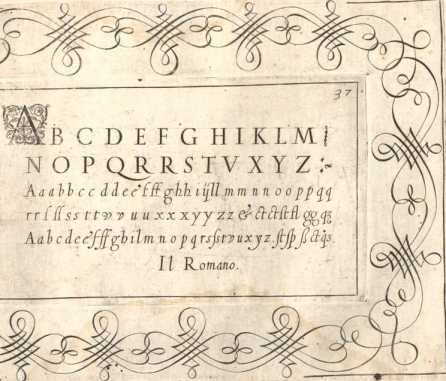 37
A B C D E F G H I K L M
N O P Q R R S T V X Y Z
A a a b b c c d d e e ſ f f g h h i ij l l m m n n o o p p q q
r r ſ ſ ſ s s t t v v u u x x x y y z z & ct ct ſt ſt gg qꝫ
A a b c d e e ſ f f g h i l m n o p q r s ſ s t v u x y z ſt ſp ſs ct
Il Romano.